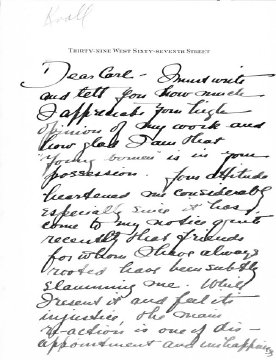 Kroll
THIRTY-NINE WEST SIXTY-SEVENTH STREET
Dear Carl - I must write
and tell you how much
I appreciate your high
opinion of my work and
how glad I am that
"Young Woman" is in your
possession. Your attitude
heartened me considerably
especially since it has
come to my notice quite
recently that friends
for whom I have always
rooted have been subtly
slamming me. While
I resent it and feel its
injustice, the main
re-action is one of dis-
appointment and unhappiness